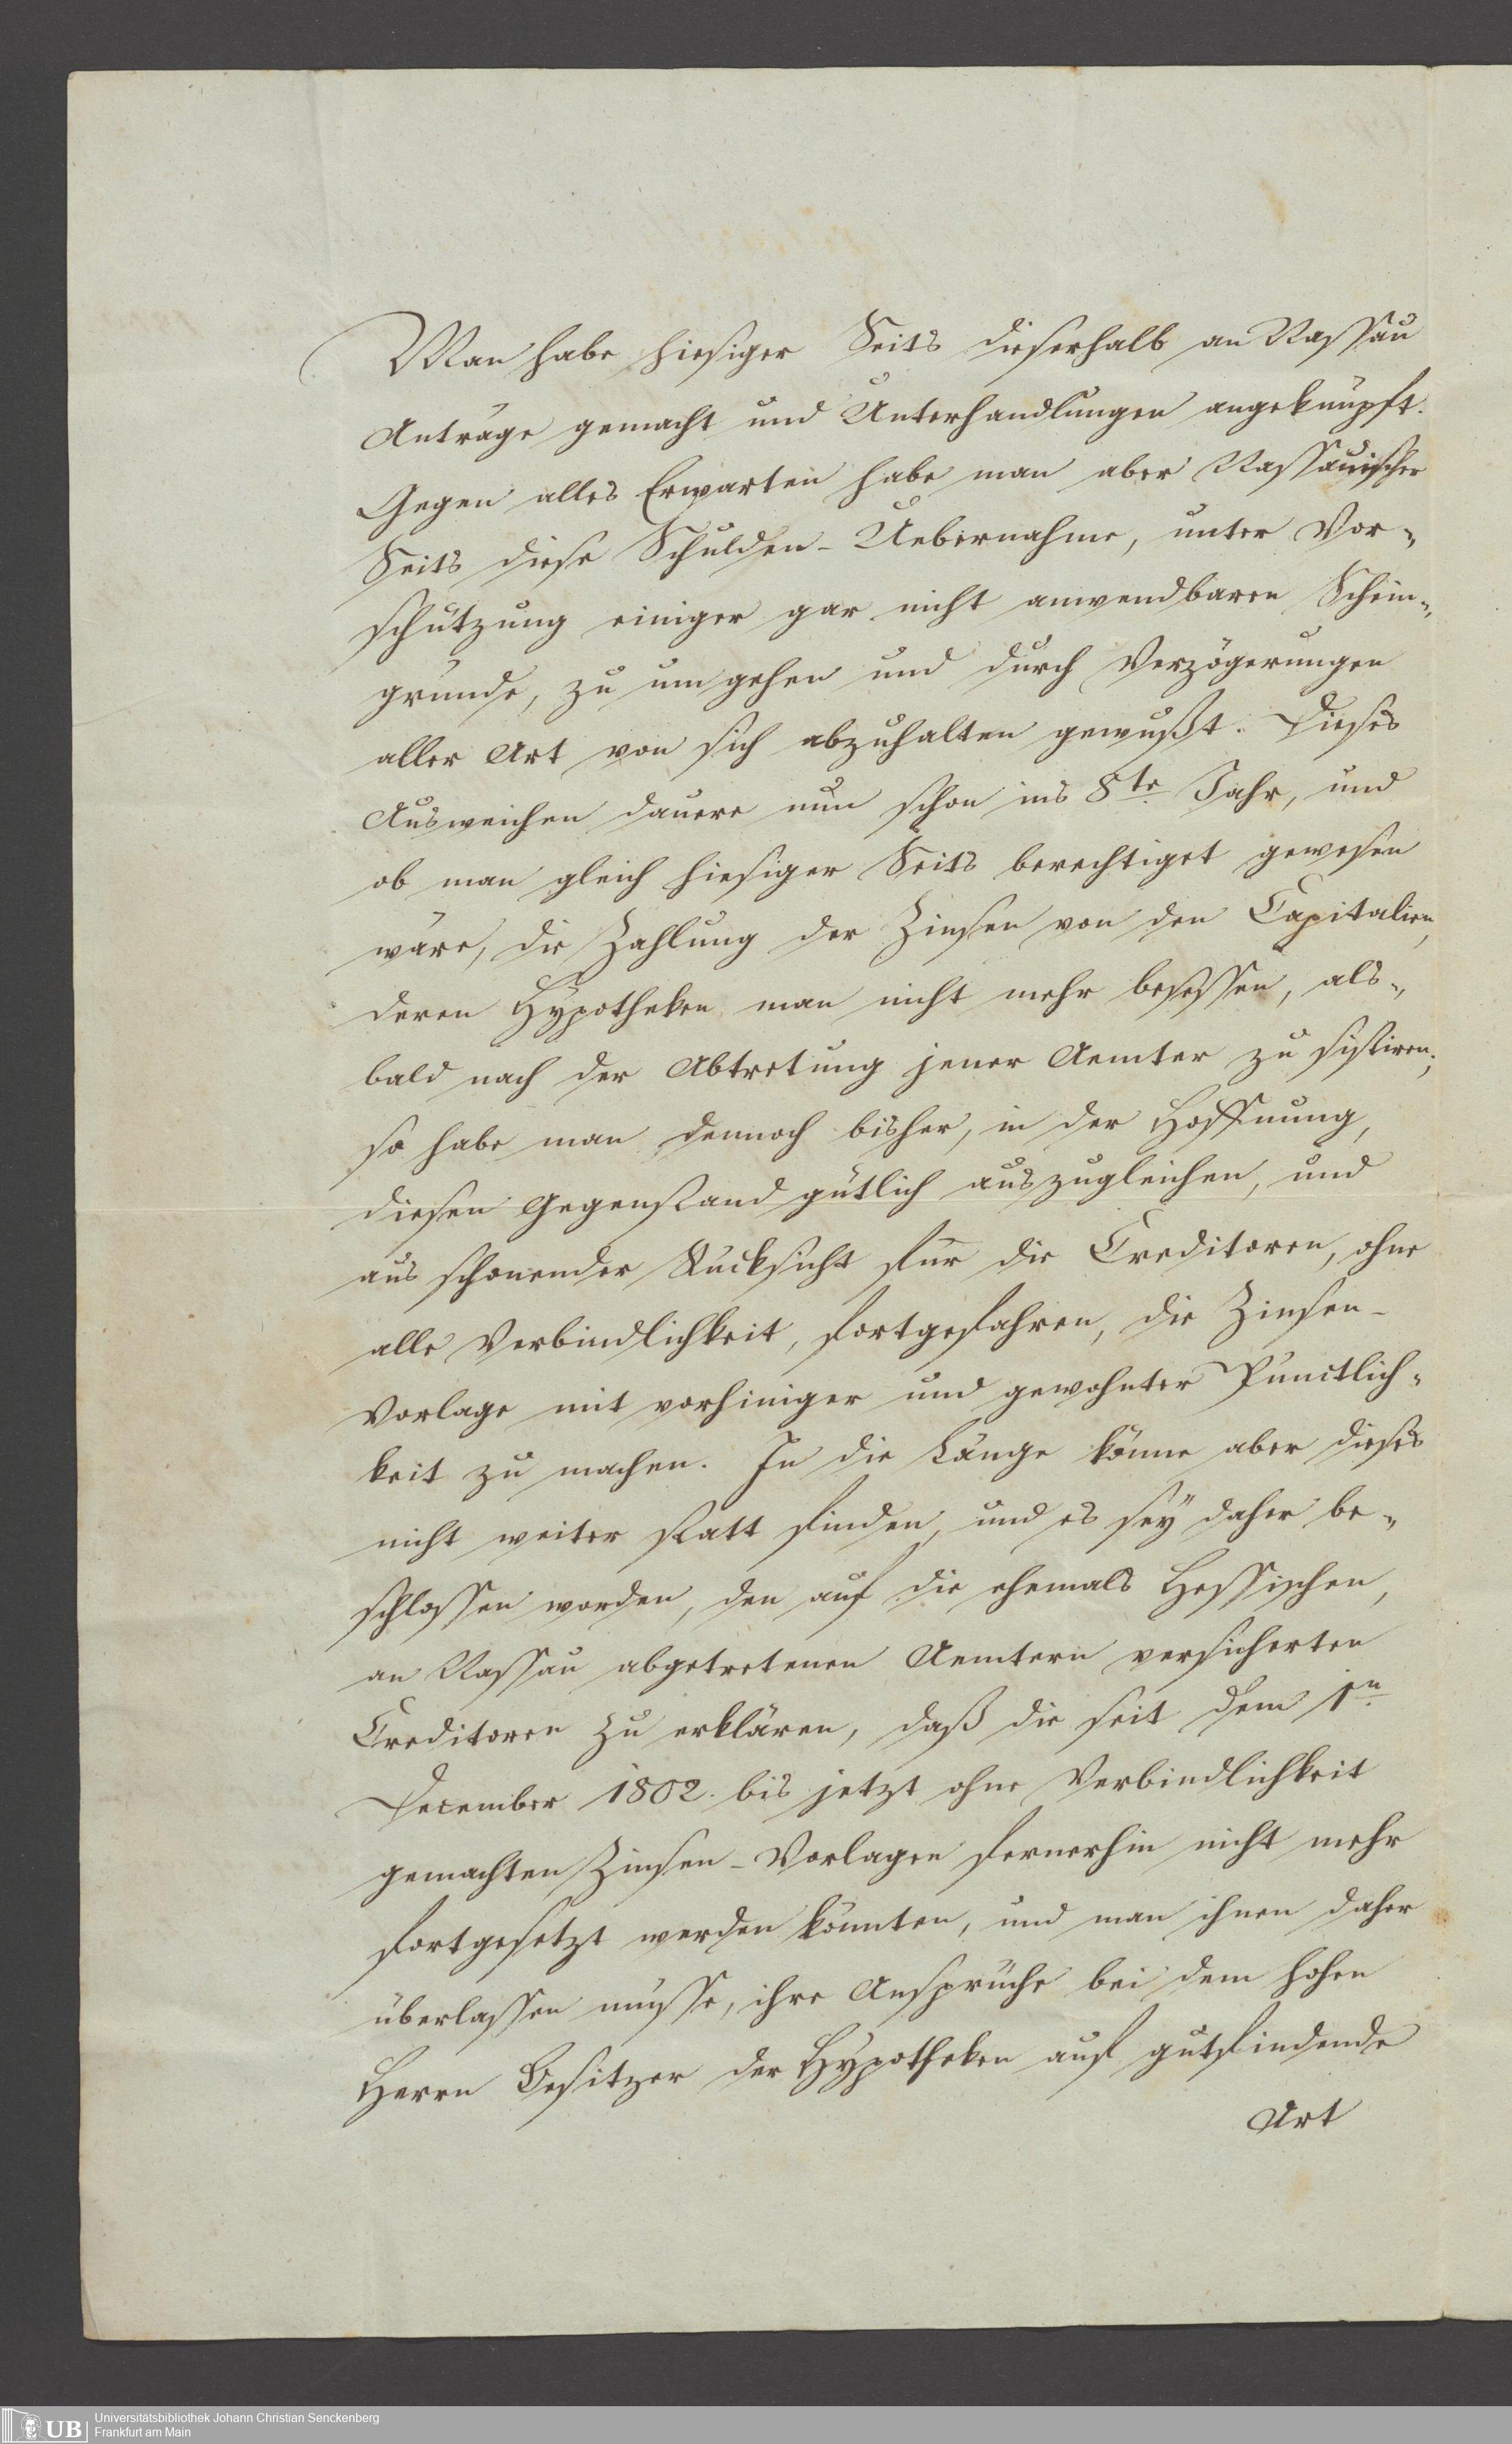 Man habe hiesiger Seits dieserhalb an Nassau
Anträge gemacht und Unterhandlungen angeknüpft.
Gegen alles Erwarten habe man aber Nassauischer
Seits diese Schulden-Uebernahme, unter Vor-
schützung einiger gar nicht anwendbaren Schein-
gründe, zu umgehen und durch Verzögerungen
aller Art von sich abzuhalten gewußt. Dieses
Ausweichen dauere nun schon ins 8te Jahr, und
ob man gleich hiesiger Seits berechtiget gewesen
wäre, die Zahlung der Zinsen von den Capitalien,
deren Hypotheken man nicht mehr besessen, als-
bald nach der Abtretung jener Aemter zu sistiren;
so habe man dennoch bisher, in der Hoffnung,
diesen Gegenstand gütlich auszugleichen, und
aus schonender Rücksicht für die Creditoren, ohne
alle Verbindlichkeit, fortgefahren, die Zinsen-
Vorlage mit vorhiniger und gewohnter Punctlich-
keit zu machen. In die Länge könne aber dieses
nicht weiter statt finden, und es sey daher be-
schlossen worden, den auf die ehemals Hessischen,
an Nassau abgetretenen Aemtern versicherten
Creditoren zu erklären, daß die seit dem 1n
December 1802. bis jetzt ohne Verbindlichkeit
gemachten Zinsen-Vorlagen fernerhin nicht mehr
fortgesetzt werden könnten, und man ihnen daher
überlassen müsse, ihre Ansprüche bei dem hohen
Herrn Besitzer der Hypotheken auf gutfindende
Art
UB Universitätsbibliothek Johann Christian Senckenberg
Frankfurt am Main